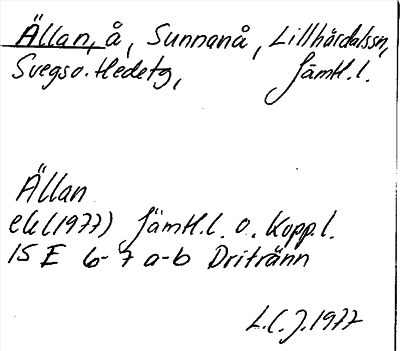 Ällan, å, Sunnanå, Lillhärdalssn,
Svegs o. Hedetg, Jämtl.l.
Ällan
ek (1977) Jämtl.l. o. Kopp.l.
15 E 6-7 a-b Dritränn
L.C.J. 1977